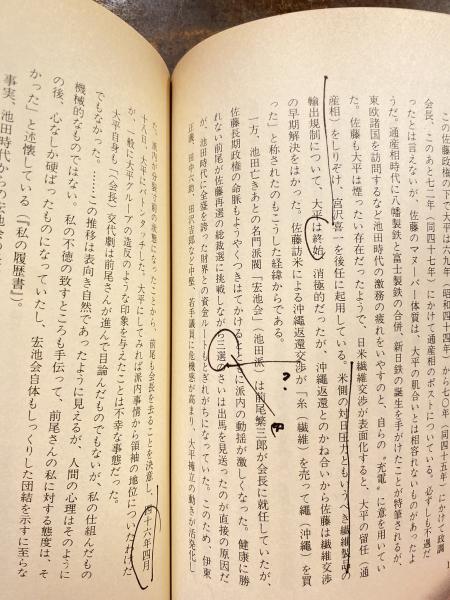 この佐藤長期政権の下で大平は六九年（昭和四十四年）から七〇年（同四十五年）にかけて政調
会長、このあと七二年（同四十七年）にかけて通産相のポストについている。必ずしも不遇だ
ったとは言えないが、佐藤のマヌーバー体質は、大平の肌合いとは相容れないものがあったよ
うだ。通産相時代に八幡製鉄と富士製鉄の合併、新日鉄の誕生を手がけたことが特筆されるが、
東欧諸国を訪問するなど池田時代の激務の疲れをいやすのと、自らの〝充電〟に意を用いてい
た。佐藤も大平は煙ったい存在だったようで、日米繊維交渉が表面化すると、大平の留任（通
産相）をしりぞけ、宮沢喜一を後任に起用している。米側の対日圧力ともいうべき繊維製品の
輸出規制について、大平は終始、消極的だったが、沖縄返還とのかね合いから佐藤は繊維交渉
の早期解決をはかった。佐藤訪米による沖縄返還交渉が「糸（繊維）を売って縄（沖縄）を買
った」と称されたのもこうした経緯からである。
一方、池田亡きあとの名門派閥「宏池会」（池田派）は前尾繁三郎が会長に就任していたが、
佐藤長期政権の命脈もようやくつきはてかけるとともに派内の動揺が激しくなった。健康に勝
れない前尾が佐藤再選の総裁選に挑戦しながら三選のさいは出馬を見送ったのが直接の原因だ
が、池田時代に全盛を誇った財界との資金ルートもとぎれがちになっていた。このため、伊東
正義、田中六助、田沢吉郎など中堅、若手議員に危機感が高まり、大平擁立の動きが活発化し
た。派内は分裂寸前の状態になったことから、前尾も会長を去ることを決意し、四十六年四月
十八日、大平にバトンタッチした。大平にしてみれば派内事情から領袖の地位についたわけだ
が、一般に大平クルーアの造反のような印象を与えたことは不幸な事態だった。
大平自身も「（会長）交代劇は前尾さんが進んで目論んだものでもないが、私の仕組んだもの
でもなかった。……この推移は表向き自然であったように見えるが、人間の心理はそのように
機械的なものではない。私の不徳の致すところも手伝って、前尾さんの私に対する態度は、そ
の後、心なしか硬ばったものになっていたし、宏池会自体もしっくりした団結を示すに至らな
かった」と述懐している（『私の履歴書』）。
事実、池田時代からの宏池会の